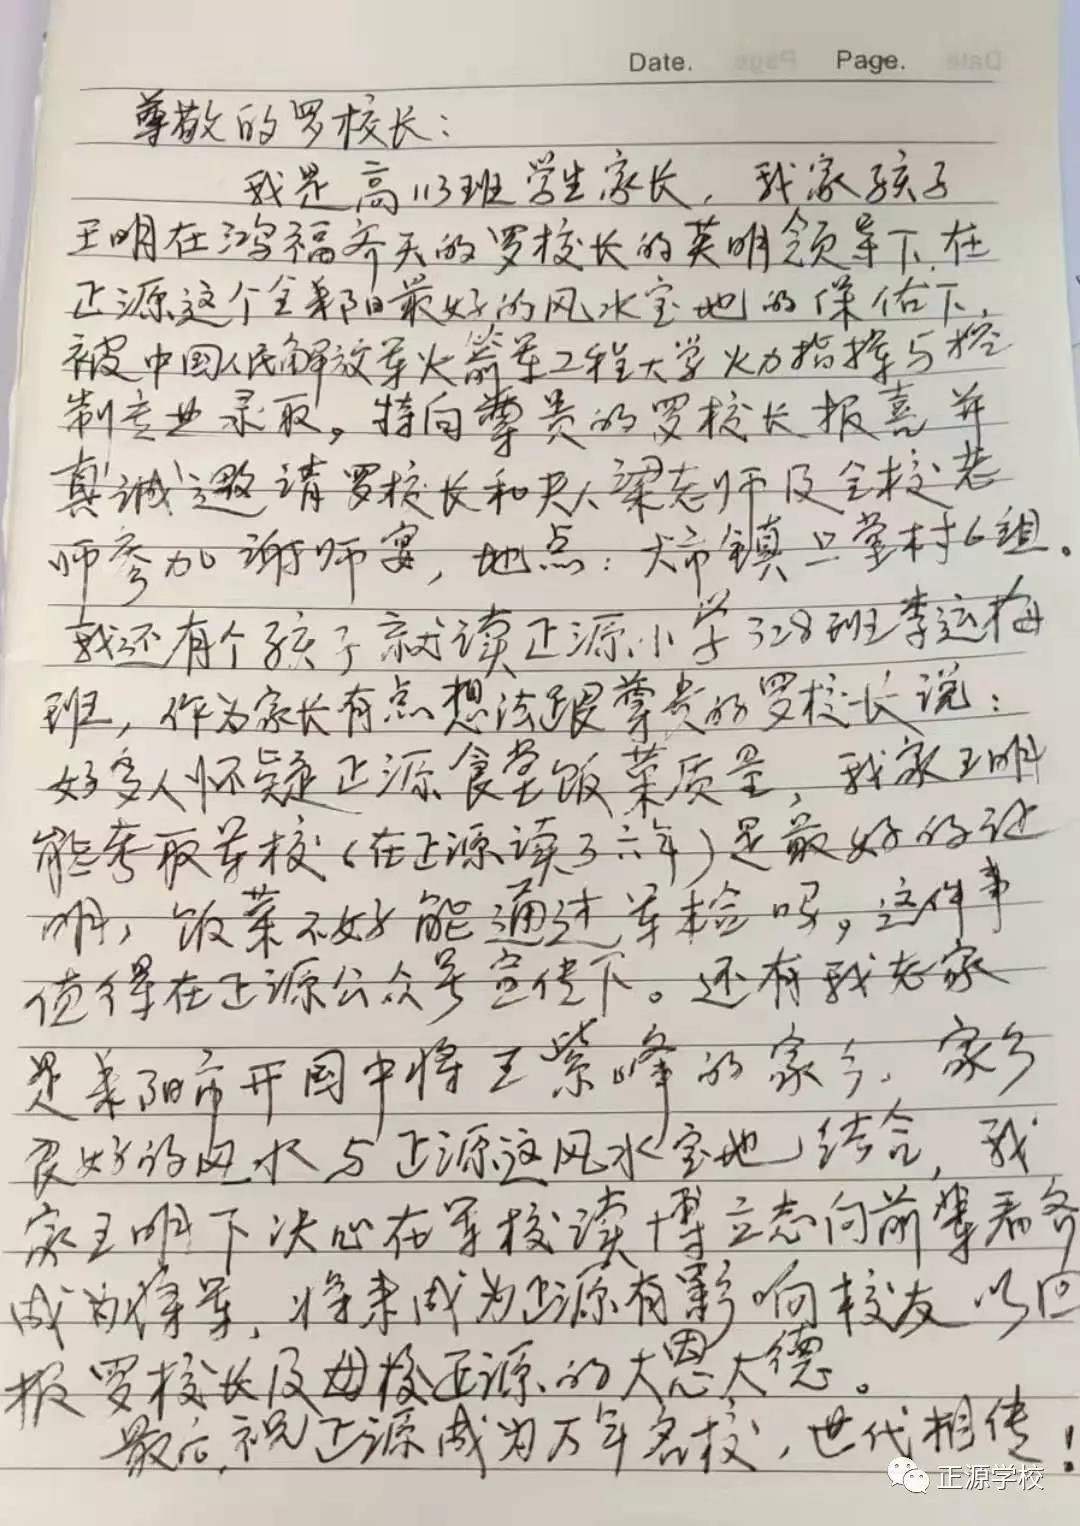 Date. Page.
尊敬的罗校长：
我是高113班学生家长，我家孩子
王明在鸿福齐天的罗校长的英明领导下，在
正源这个全耒阳最好的风水宝地的保佑下，
被中国人民解放军火箭军工程大学火力指挥与控
制专业录取。特向尊贵的罗校长报喜并
真诚邀请罗校长和夫人梁老师及全校老
师参加谢师宴，地点：大市镇 堂村6组。
我还有个孩子就读正源小学328班李运梅
班，作为家长有点想法跟尊贵的罗校长说：
好多人怀疑正源食堂饭菜质量，我家王明
能考取军校（在正源读了六年）是最好的证
明，饭菜不好能通过军检吗。这件事
值得在正源公众号宣传下。还有我老家
是耒阳市开国中将王紫峰的家乡，家乡
良好的风水与正源这风水宝地结合，我
家王明下决心在军校读博立志向前辈看齐
成为将军，将来成为正源有影响校友以回
报罗校长及母校正源的大恩大德。
最后，祝正源成为万年名校，世代相传！
正源学校